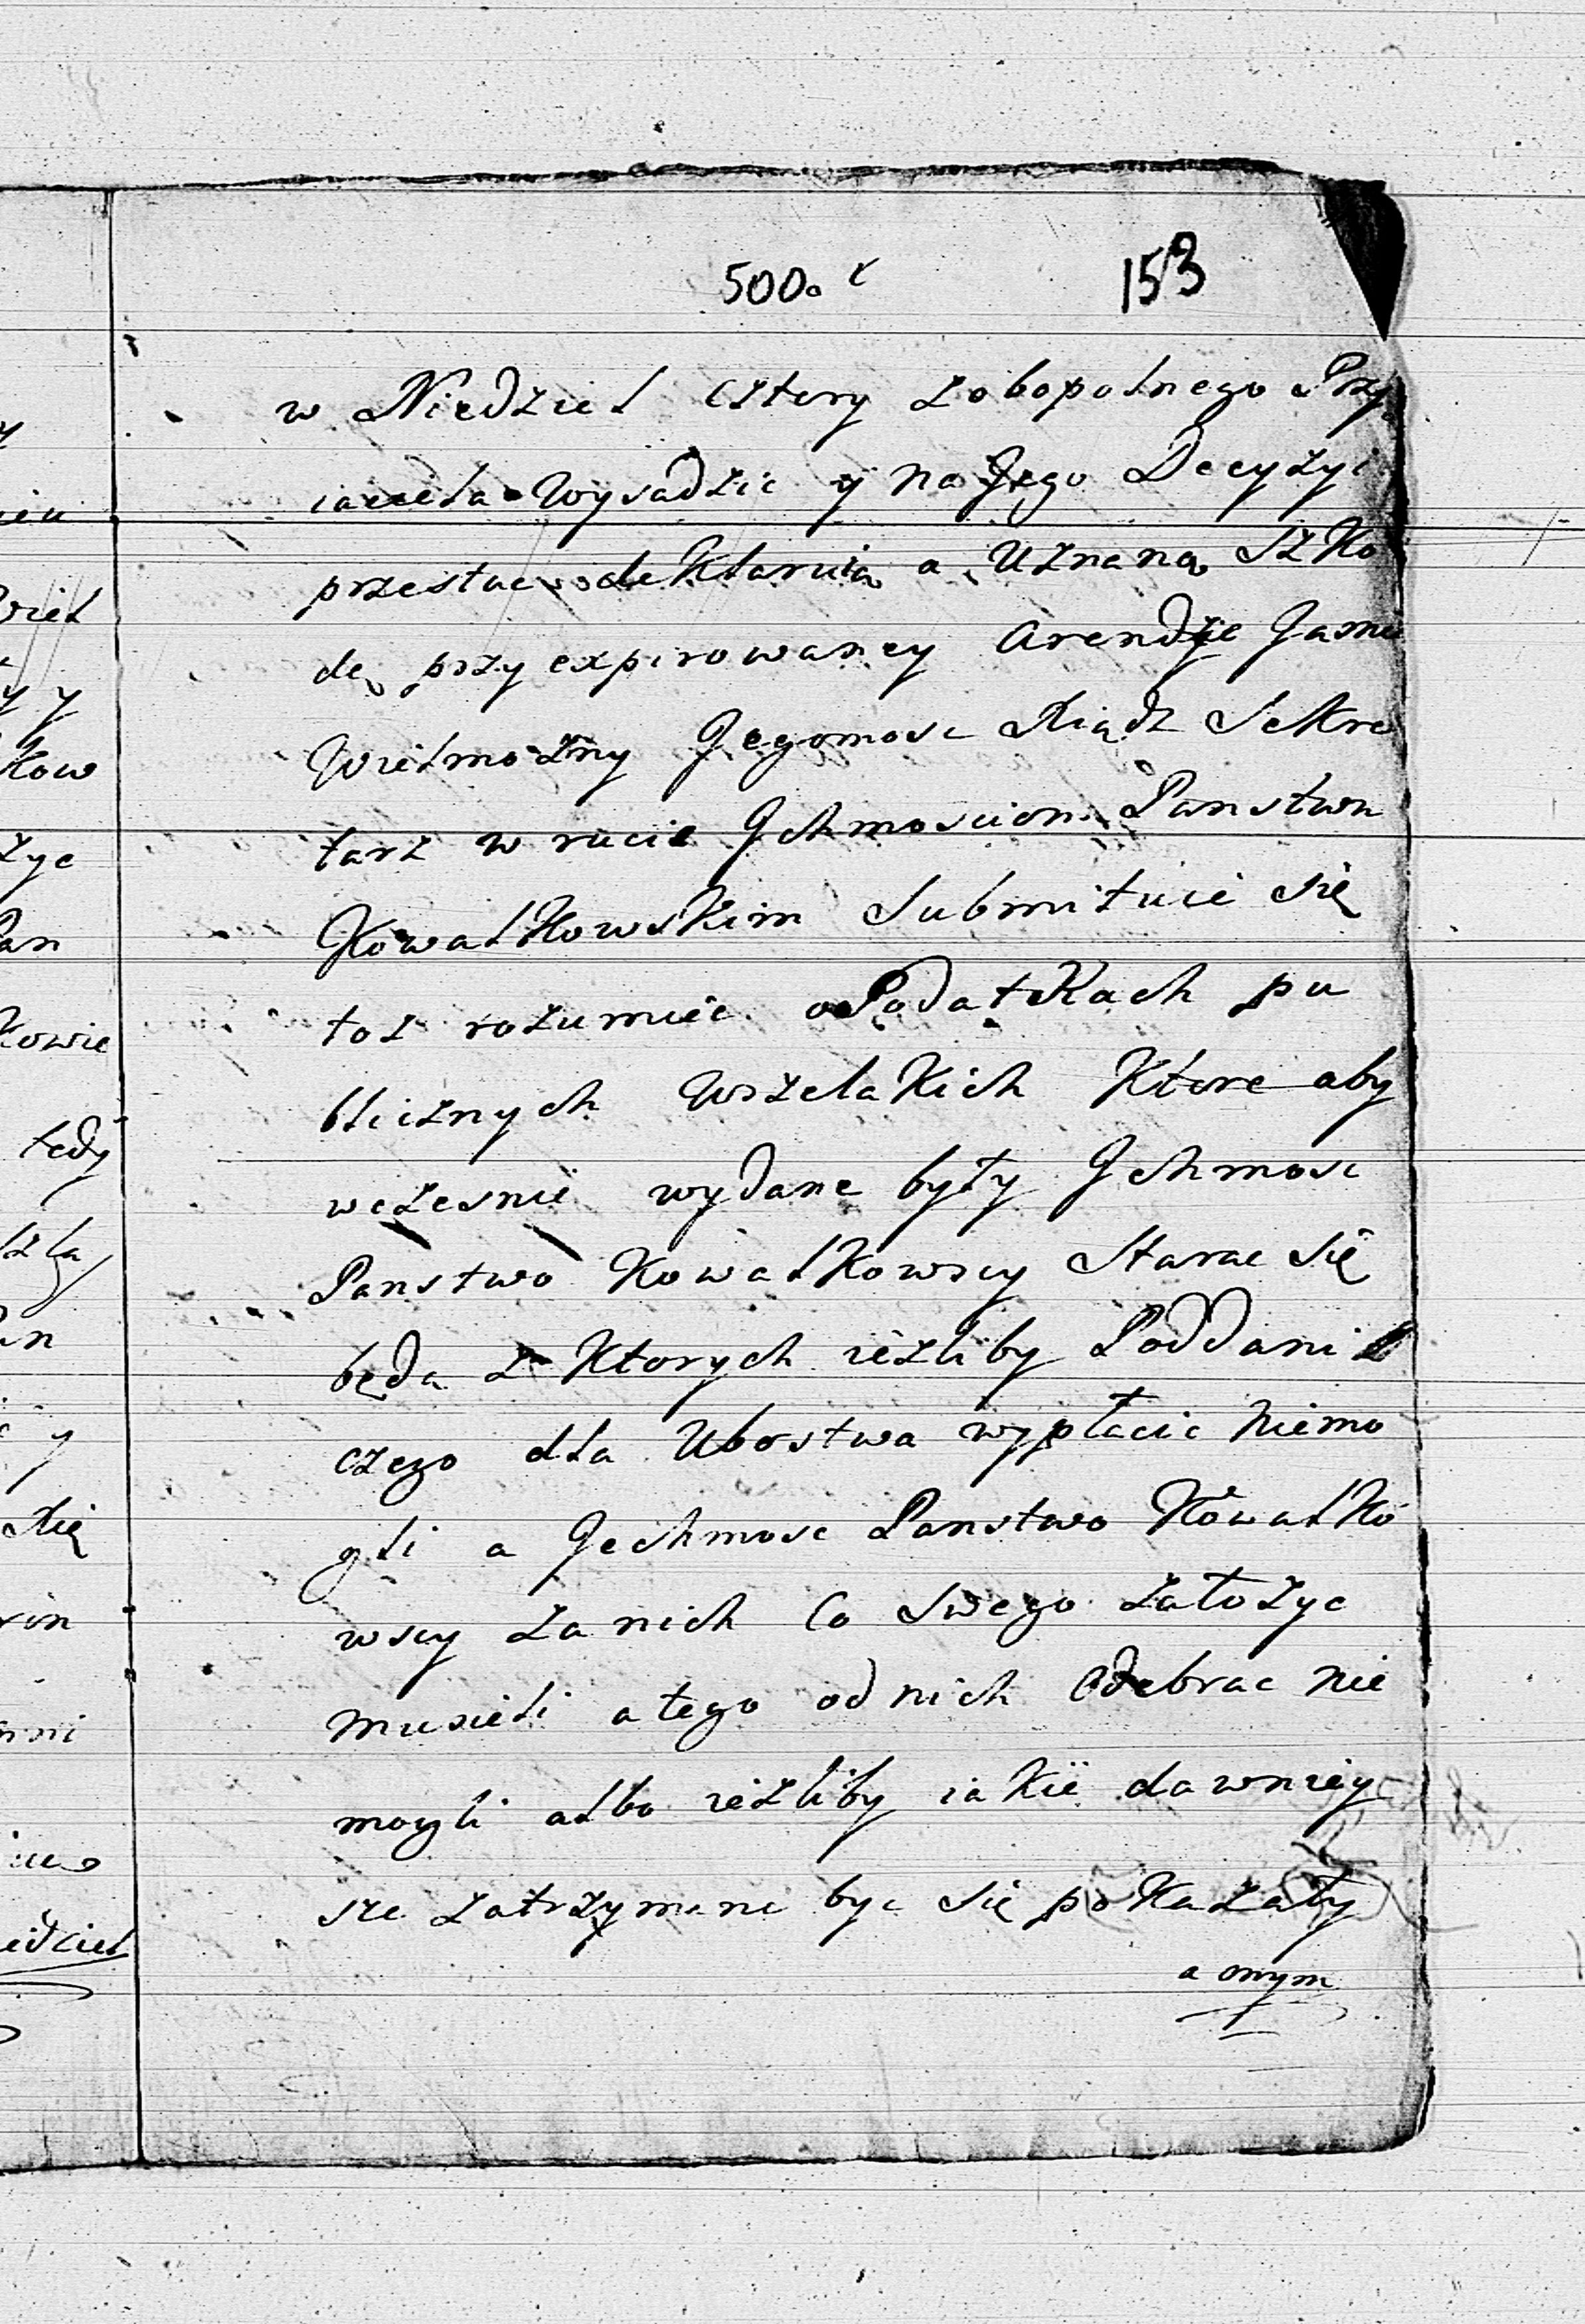 500. 153
w Niedziel cztery zobopolnego Przy
iaciela wysadzic y na Jego Decyzyi
przestac deklaruią a uznaną szko
dę przy expirowaney arendzie Jasnie
Wielmozny Jegomosc Xiądz Sekre
tarz w racie Ichmosciom Panstwu
Kowalkowskim submituie się
toz rozumiec o Podatkach pu
blicznych wszelakich ktore aby
wczesnie wydane były Ichmosc
Panstwo Kowalkowscy starac się
będa z ktorych iezliby Poddani
czego dla ubostwa wypłacic niemo
gli a Jechmosc Panstwo Kowalko
wscy za nich co swego załozyc
musieli a tego od nich odebrac nie
mogli albo iezliby iakie dawniey
sze zatrzymane byc się pokazały
a onym